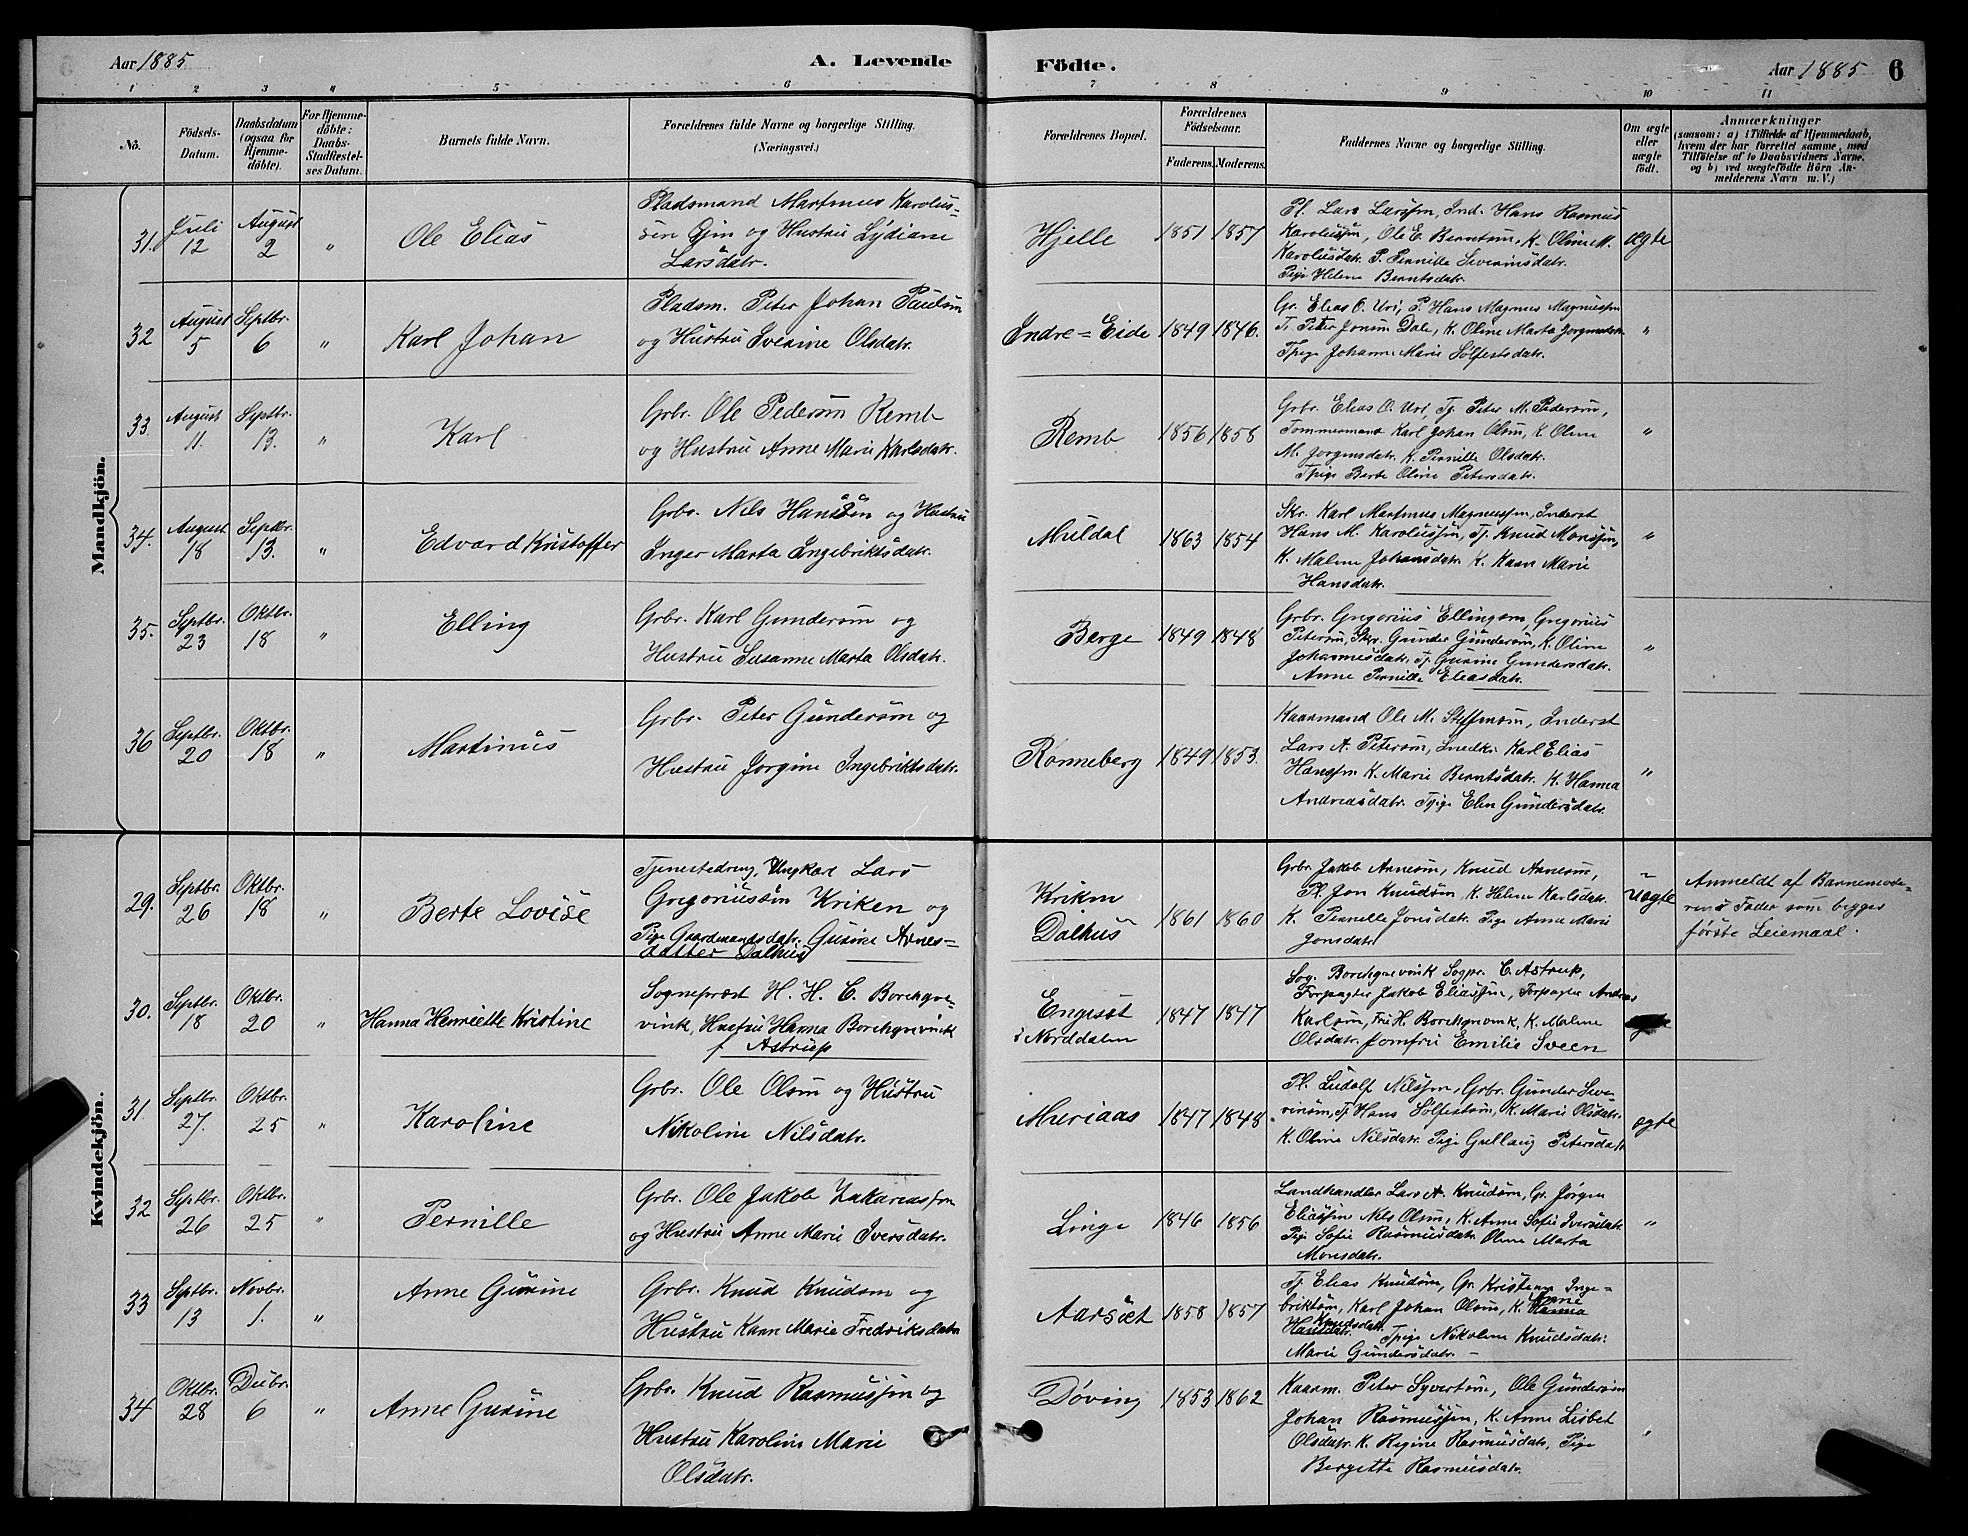 Aar 1885 A. Levende Födte. Aar 1885 6
1 2 3 4 5 6 7 8 9 10 11
No. Födsels-Datum. Daabsdatum (ogsaa for Hjemme-döbte). For Hjemme-döbte: Daabs-Stadfæstel-ses Datum. Barnets fulde Navn. Forældrenes fulde Navne og borgerlige Stilling. (Næringsvei.) Forældrenes Bopæl. Forældrenes Födselsaar. Faderens. Moderens. Faddernes Navne og borgerlige Stilling. Om ægte eller uægte födt. Anmærkninger (saasom: a) i Tilfælde af Hjemmedaab, hvem der har forrettet samme, med Tilföielse af to Daabsvidners Navne. og b) ved uægtefödte Börn Anmelderens Navn m. V.)
Mandkjön.
31. Juli 12 August 2 " Ole Elias
Pladsmand Martinus Karolus-
sen Gjin og Hustru Lydiane
Larsdatr.
Hjelle 1851 1857
Pl. Lars Larssen, Ind. Hans Rasmus
Karolussen, Ole E. Berntsen, K. Oline M.
Karolusdatr. P. Pernille Severinsdatr.
Pige Helene Berntsdatr.
ægte
32 August 5 Septbr. 6 " Karl Johan
Pladsm. Peter Johan Paulsen
og Hustru Sverine Olsdatr.
Indre=Eide 1849 1846.
Gr. Elias O. Uri, P. Hans Magnus Magnussen
Tj. Peter Jonsen Dale, K. Oline Marta Jorgensdatr.
Tpige Johanne Marie Sölfestsdatr.
"
33. August 11. Septbr. 13. " Karl
Grbr. Ole Pedersen Remb
og Hustru Anne Marie Karlsdatr.
Remb 1856 1858
Grbr. Elias O. Uri, Tj. Peter M. Pedersen,
Tommermand Karl Johan Olsen, K. Oline
M. Jorgensdatr. K. Pernille Olsdatr.
Tpige Berte Oline Petersdatr.
"
34. August 18 Septbr. 13. " Edvard Kristoffer
Grbr. Nils Hanssen og Hustru
Inger Marta Ingebriktsdatr.
Muldal 1863 1854
Skr. Karl Martinus Magnussen, Inderst
Hans M. Karolussen, Tj. Knud Monssen,
K. Malene Johansdatr. K. Kaan Marie
Hansdatr.
"
35. Septbr. 23 Oktbr. 18 " Elling
Grbr. Karl Gundersen og
Hustru Susanne Marta Olsdatr.
Berge 1849 1848
Grbr. Gregorius Ellingsen, Gregorius
Petersen, Skr. Gunder Gundersen, K. Oline
Johannesdatr. Tj. Gurine Gundersdatr.
Anne Pernille Eliasdatr.
"
36 Septbr. 20 Oktbr. 18 " Martinus
Grbr. Peter Gundersen og
Hustru Jorgine Ingebriktsdatr.
Rønneberg 1849 1853.
Kaarmand Ole M. Steffensen, Inderst
Lars A. Petersen, Snedkr. Karl Elias
Hanssen K. Marie Berntsdatr. K. Hanna
Andreasdatr. Tpige Elen Gundersdatr.
"
Kvindekjön.
29. Septbr. 26 Oktbr. 18 " Berte Lovise
Tjenestedreng, Ungkarl Lars
Gregoriussen Kriken og
Pige Gaardmandsdatr. Gurine Arnes=
datter Dalhus
Kriken
Dalhus 1861 1860
Grbr. Jakob Arnesen, Knud Arnesen,
Pl. Jon Knudsen, K. Helene Karlsdatr.
K. Pernille Jonsdatr. Pige Anne Marie
Jonsdatr
uægte
Anmeldt af Barnemode-
rens Fader som begges
første Leiemaal.
30. Septbr. 18 Oktbr. 20 " Hanna Henriette Kristine
Sogneprest H. H. C. Borchgre-
vink, Hustru Hanna Borchgrevink
f Astrup
Engeset
i Norddalen 1847 1847
Sog. Borchgrevink Sogpr. C. Astrup,
Forpagter Jakob Eliassen, Forpagter Andreas
Karlsen, Fru H. Borchgrevink, K. Malene
Olsdatr. Jomfru Emilie Sveen
ægte
31. Septbr. 27. Oktbr. 25 " Karoline
Grbr. Ole Olsen og Hustru
Nikoline Nilsdatr.
Muriaas 1847 1848
Pl. Ludolf Nilssen, Grbr. Gunder Seve-
rinsen, Tj. Hans Sölfestsen, K. Marie Olsdatr.
K. Oline Nilsdatr. Pige Gullaug Petersdatr
ægte
32 Septbr. 26 Oktbr. 25 " Pernille
Grbr. Ole Jakob Zakariassen
og Hustru Anne Marie Iversdatr.
Linge 1846 1856
Landhandler Lars A. Knudsen, Gr. Jörgen
Eliassen Nils Olsen, K. Anne Sofie Iversdatr
Pige Sofie Rasmusdatr Oline Marta
Monsdatr.
"
33 Septbr. 13 Novbr. 1. " Anne Gurine
Grbr. Knud Knudsen og
Hustru Karen Marie Fredriksdatr
Aarsæt 1858 1857
Tj. Elias Knudsen, Gr. Kristian Inge=
briktsen, Karl Johan Olsen, K. Hanna Anne
Hansdatr. Knudsdatr. Tpige Nikoline Knudsdatr.
Marie Gundersdatr. -
34 Oktbr. 28 Decbr. 6 " Anne Gurine
Grbr. Knud Rasmussen og
Hustru Karoline Marie
Olsdatr.
Døving 1853 1862
Kaarm. Peter Syvertsen, Ole Gundersen
Johan Rasmussen, K. Anne Lisbet
Olsdatr. K. Regine Rasmusdatr. Pige
Bergitte Rasmusdatr.
"